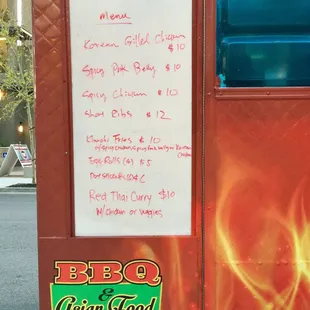 Menu
Korean Grilled Chicken $10
Spicy Pork Belly $10
Spicy Chicken $10
Short Ribs $12
Kimchi Fries $10
Egg Rolls (4) $5
Potstickers
Red Thai Curry $10
w/ Chicken or veggies
BBQ
&
Asian Food